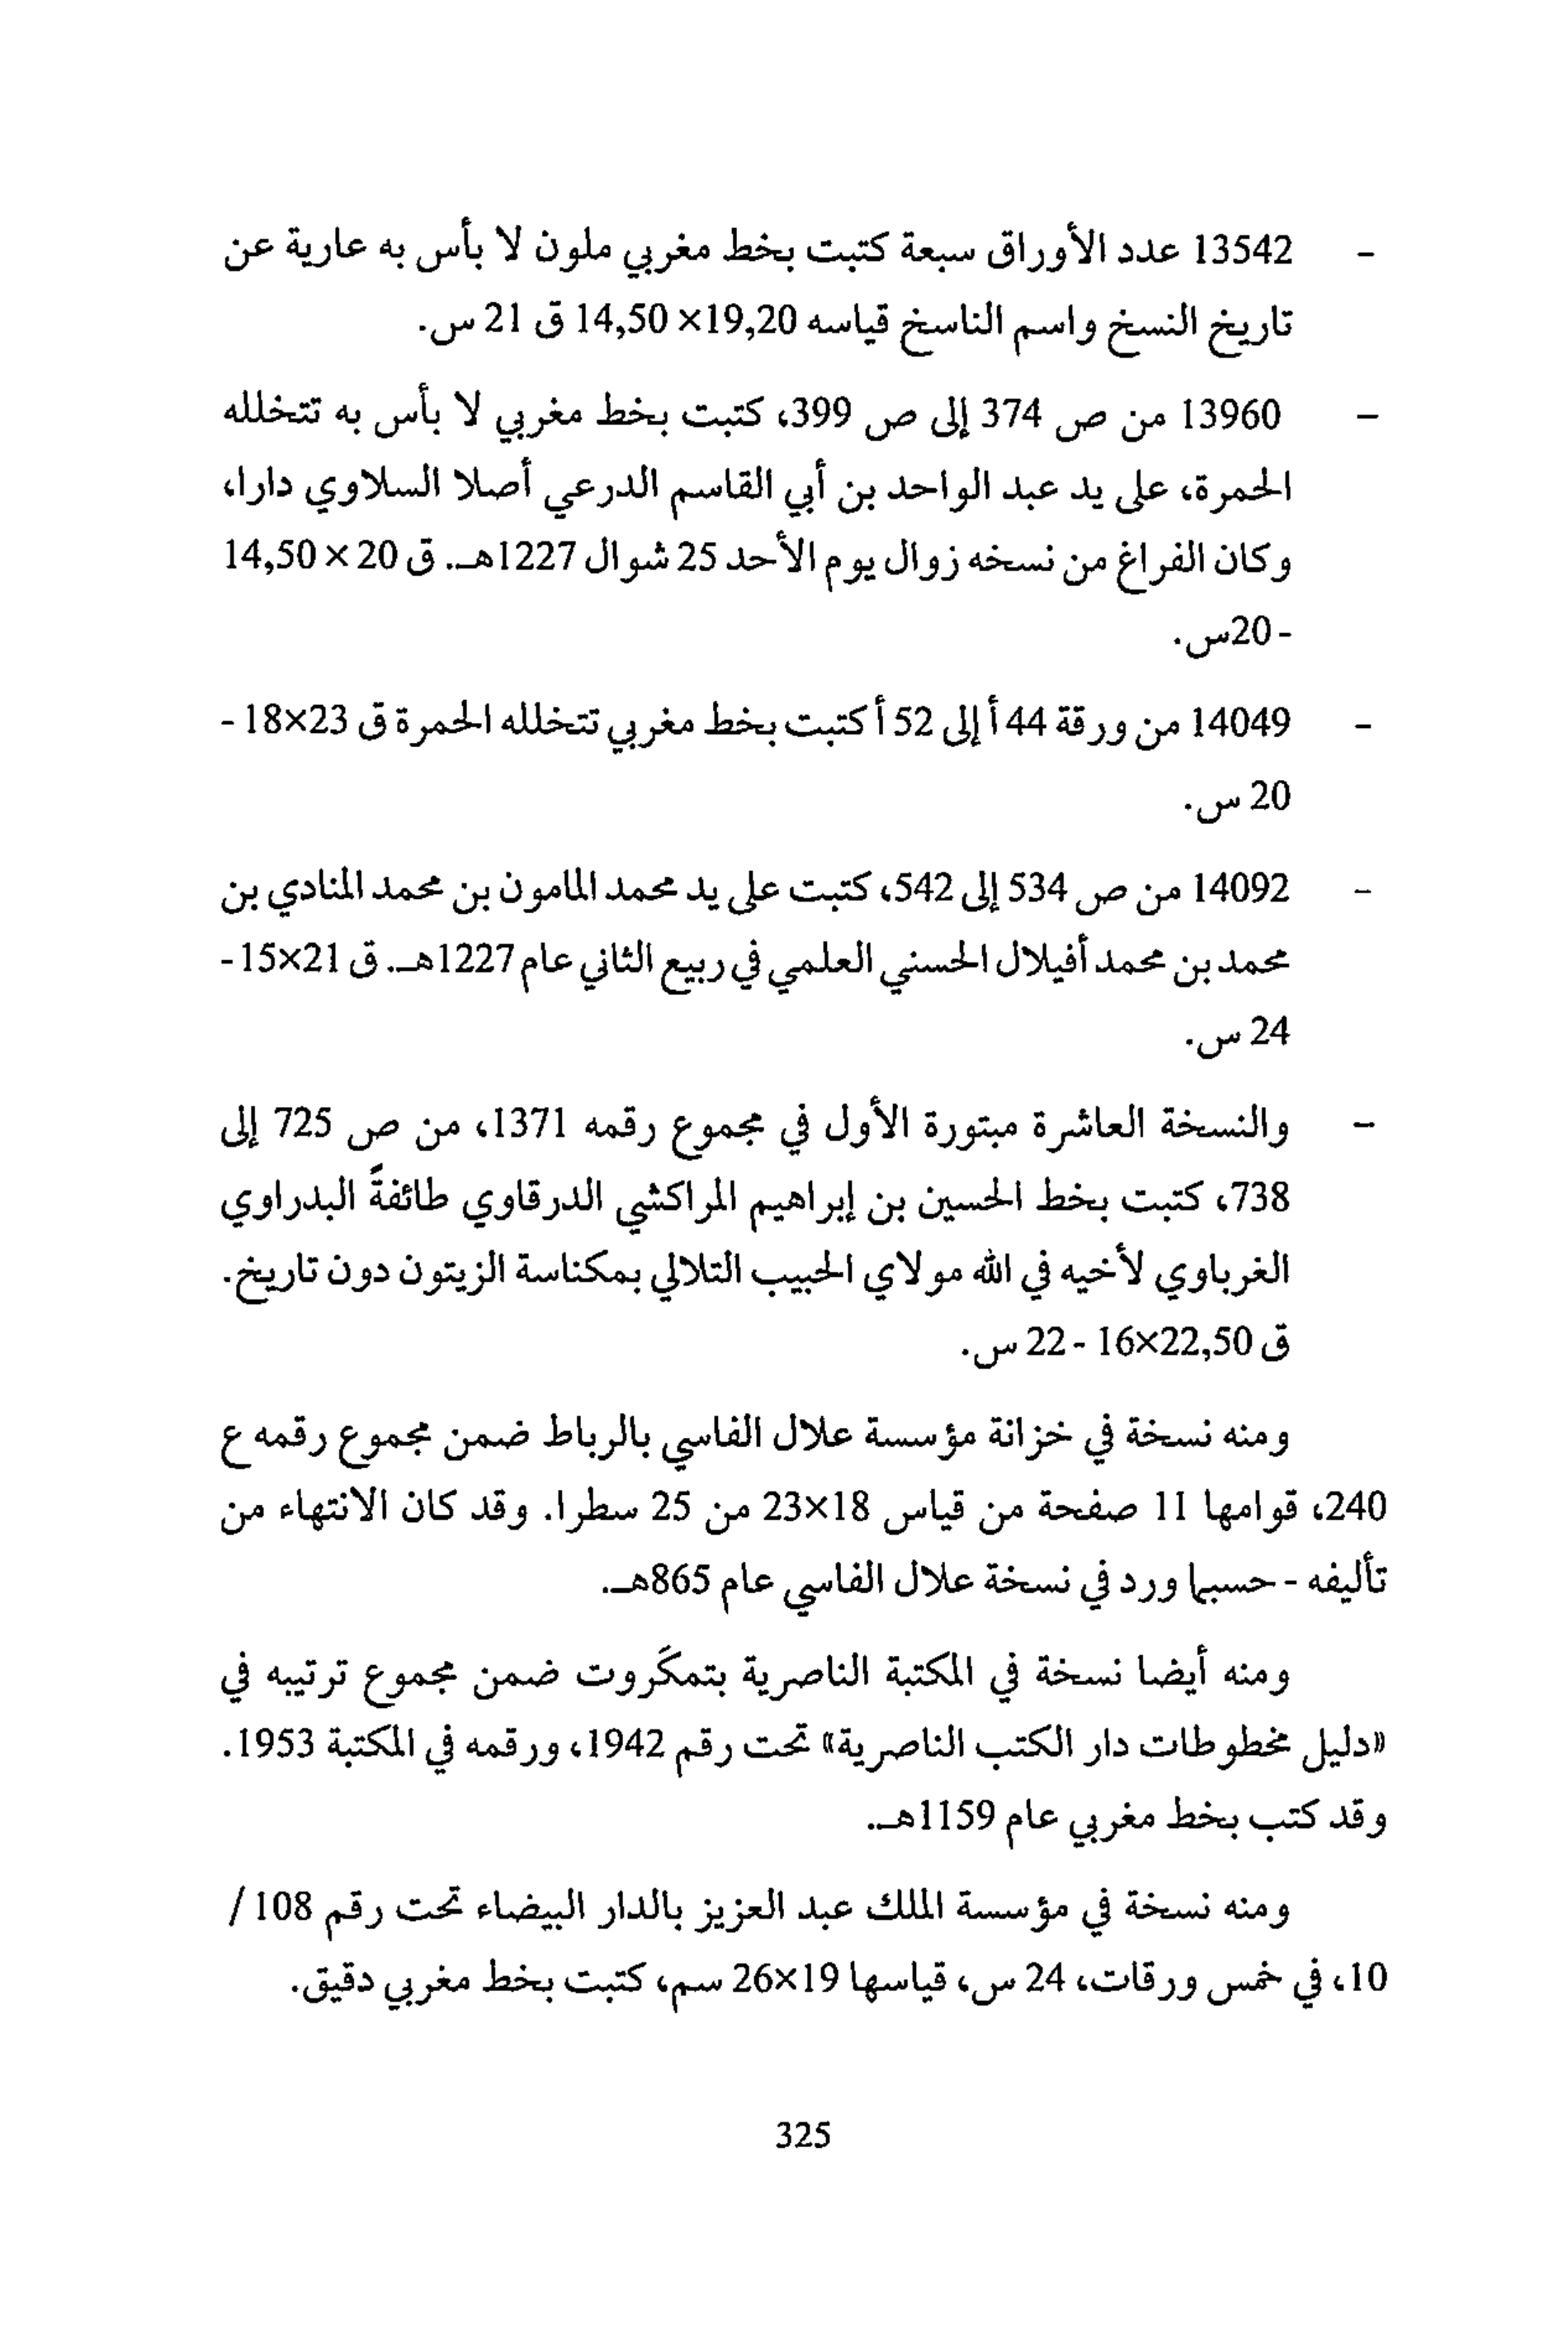 - 13542 عدد الأوراق سبعة كتبت بخط مغربي ملون لا بأس به عارية عن
تاريخ النسخ واسم الناسخ قياسه 19,20× 14,50 ق 21 س.
- 13960 من ص 374 إلى ص 399، كتبت بخط مغربي لا بأس به تتخلله
الحمرة، على يد عبد الواحد بن أبي القاسم الدرعي أصلا السلاوي دارا،
وكان الفراغ من نسخه زوال يوم الأحد 25 شوال 1227هـ. ق 20 × 14,50
- 20س.
- 14049 من ورقة 44 أ إلى 52 أ كتبت بخط مغربي تتخلله الحمرة ق 23×18 -
20 س.
- 14092 من ص 534 إلى 542، كتبت على يد محمد المامون بن محمد المنادي بن
محمد بن محمد أفيلال الحسني العلمي في ربيع الثاني عام 1227هـ. ق 21×15 -
24 س.
- والنسخة العاشرة مبتورة الأول في مجموع رقمه 1371، من ص 725 إلى
738، كتبت بخط الحسين بن إبراهيم المراكشي الدرقاوي طائفةً البدراوي
الغرباوي لأخيه في الله مولاي الحبيب التلالي بمكناسة الزيتون دون تاريخ.
ق 22,50×16 - 22 س.
ومنه نسخة في خزانة مؤسسة علال الفاسي بالرباط ضمن مجموع رقمه ع
240، قوامها 11 صفحة من قياس 18×23 من 25 سطرا. وقد كان الانتهاء من
تأليفه - حسبما ورد في نسخة علال الفاسي عام 865هـ.
ومنه أيضا نسخة في المكتبة الناصرية بتمكَروت ضمن مجموع ترتيبه في
«دليل مخطوطات دار الكتب الناصرية» تحت رقم 1942، ورقمه في المكتبة 1953.
وقد كتب بخط مغربي عام 1159هـ.
ومنه نسخة في مؤسسة الملك عبد العزيز بالدار البيضاء تحت رقم 108 /
10، في خمس ورقات، 24 س، قياسها 19×26 سم، كتبت بخط مغربي دقيق.
325